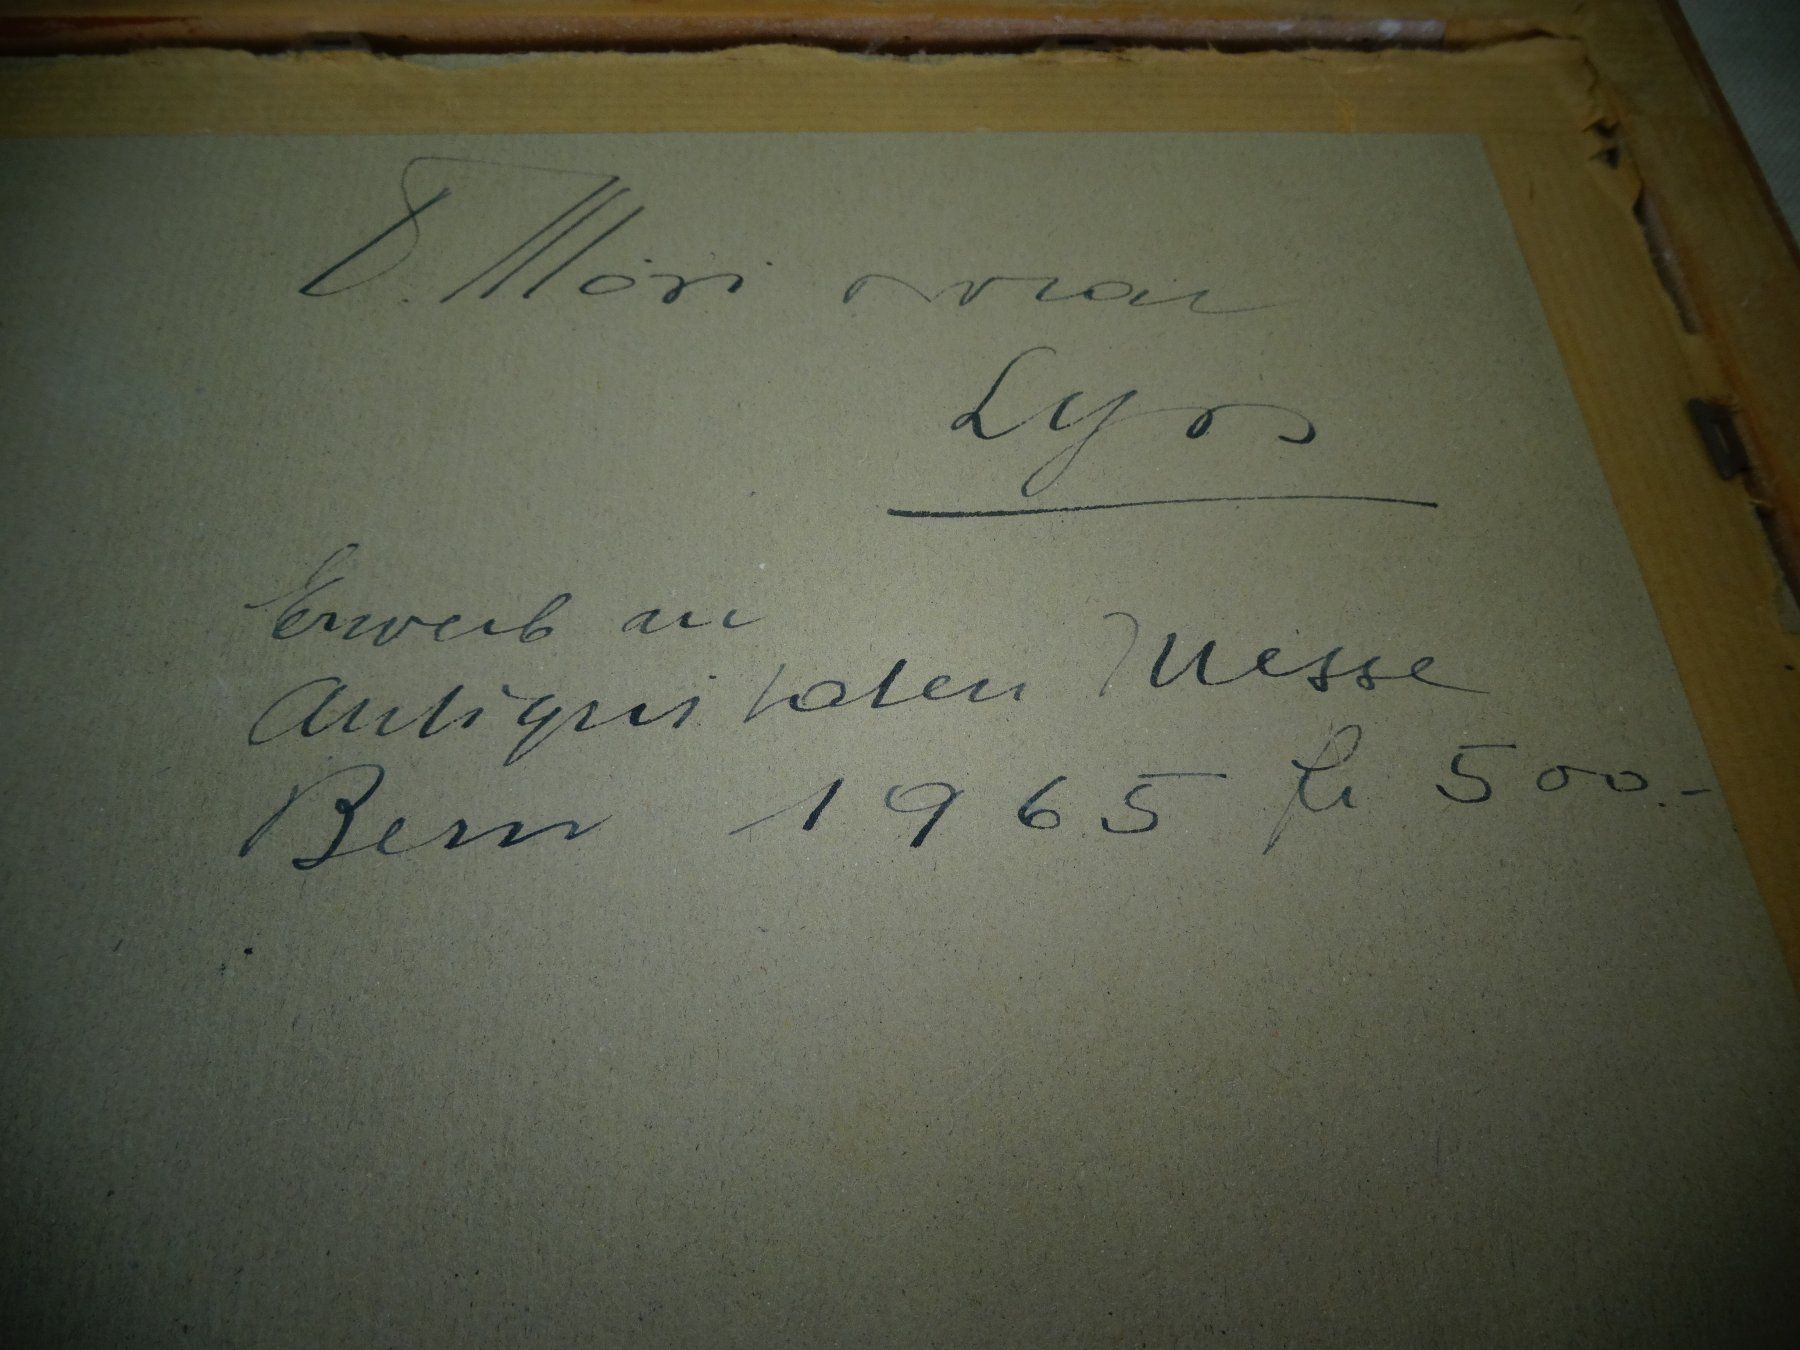 E. Möri Notar
Lyss
Erwerb an
Antiquitäten Messe
Bern 1965 fr 500.-